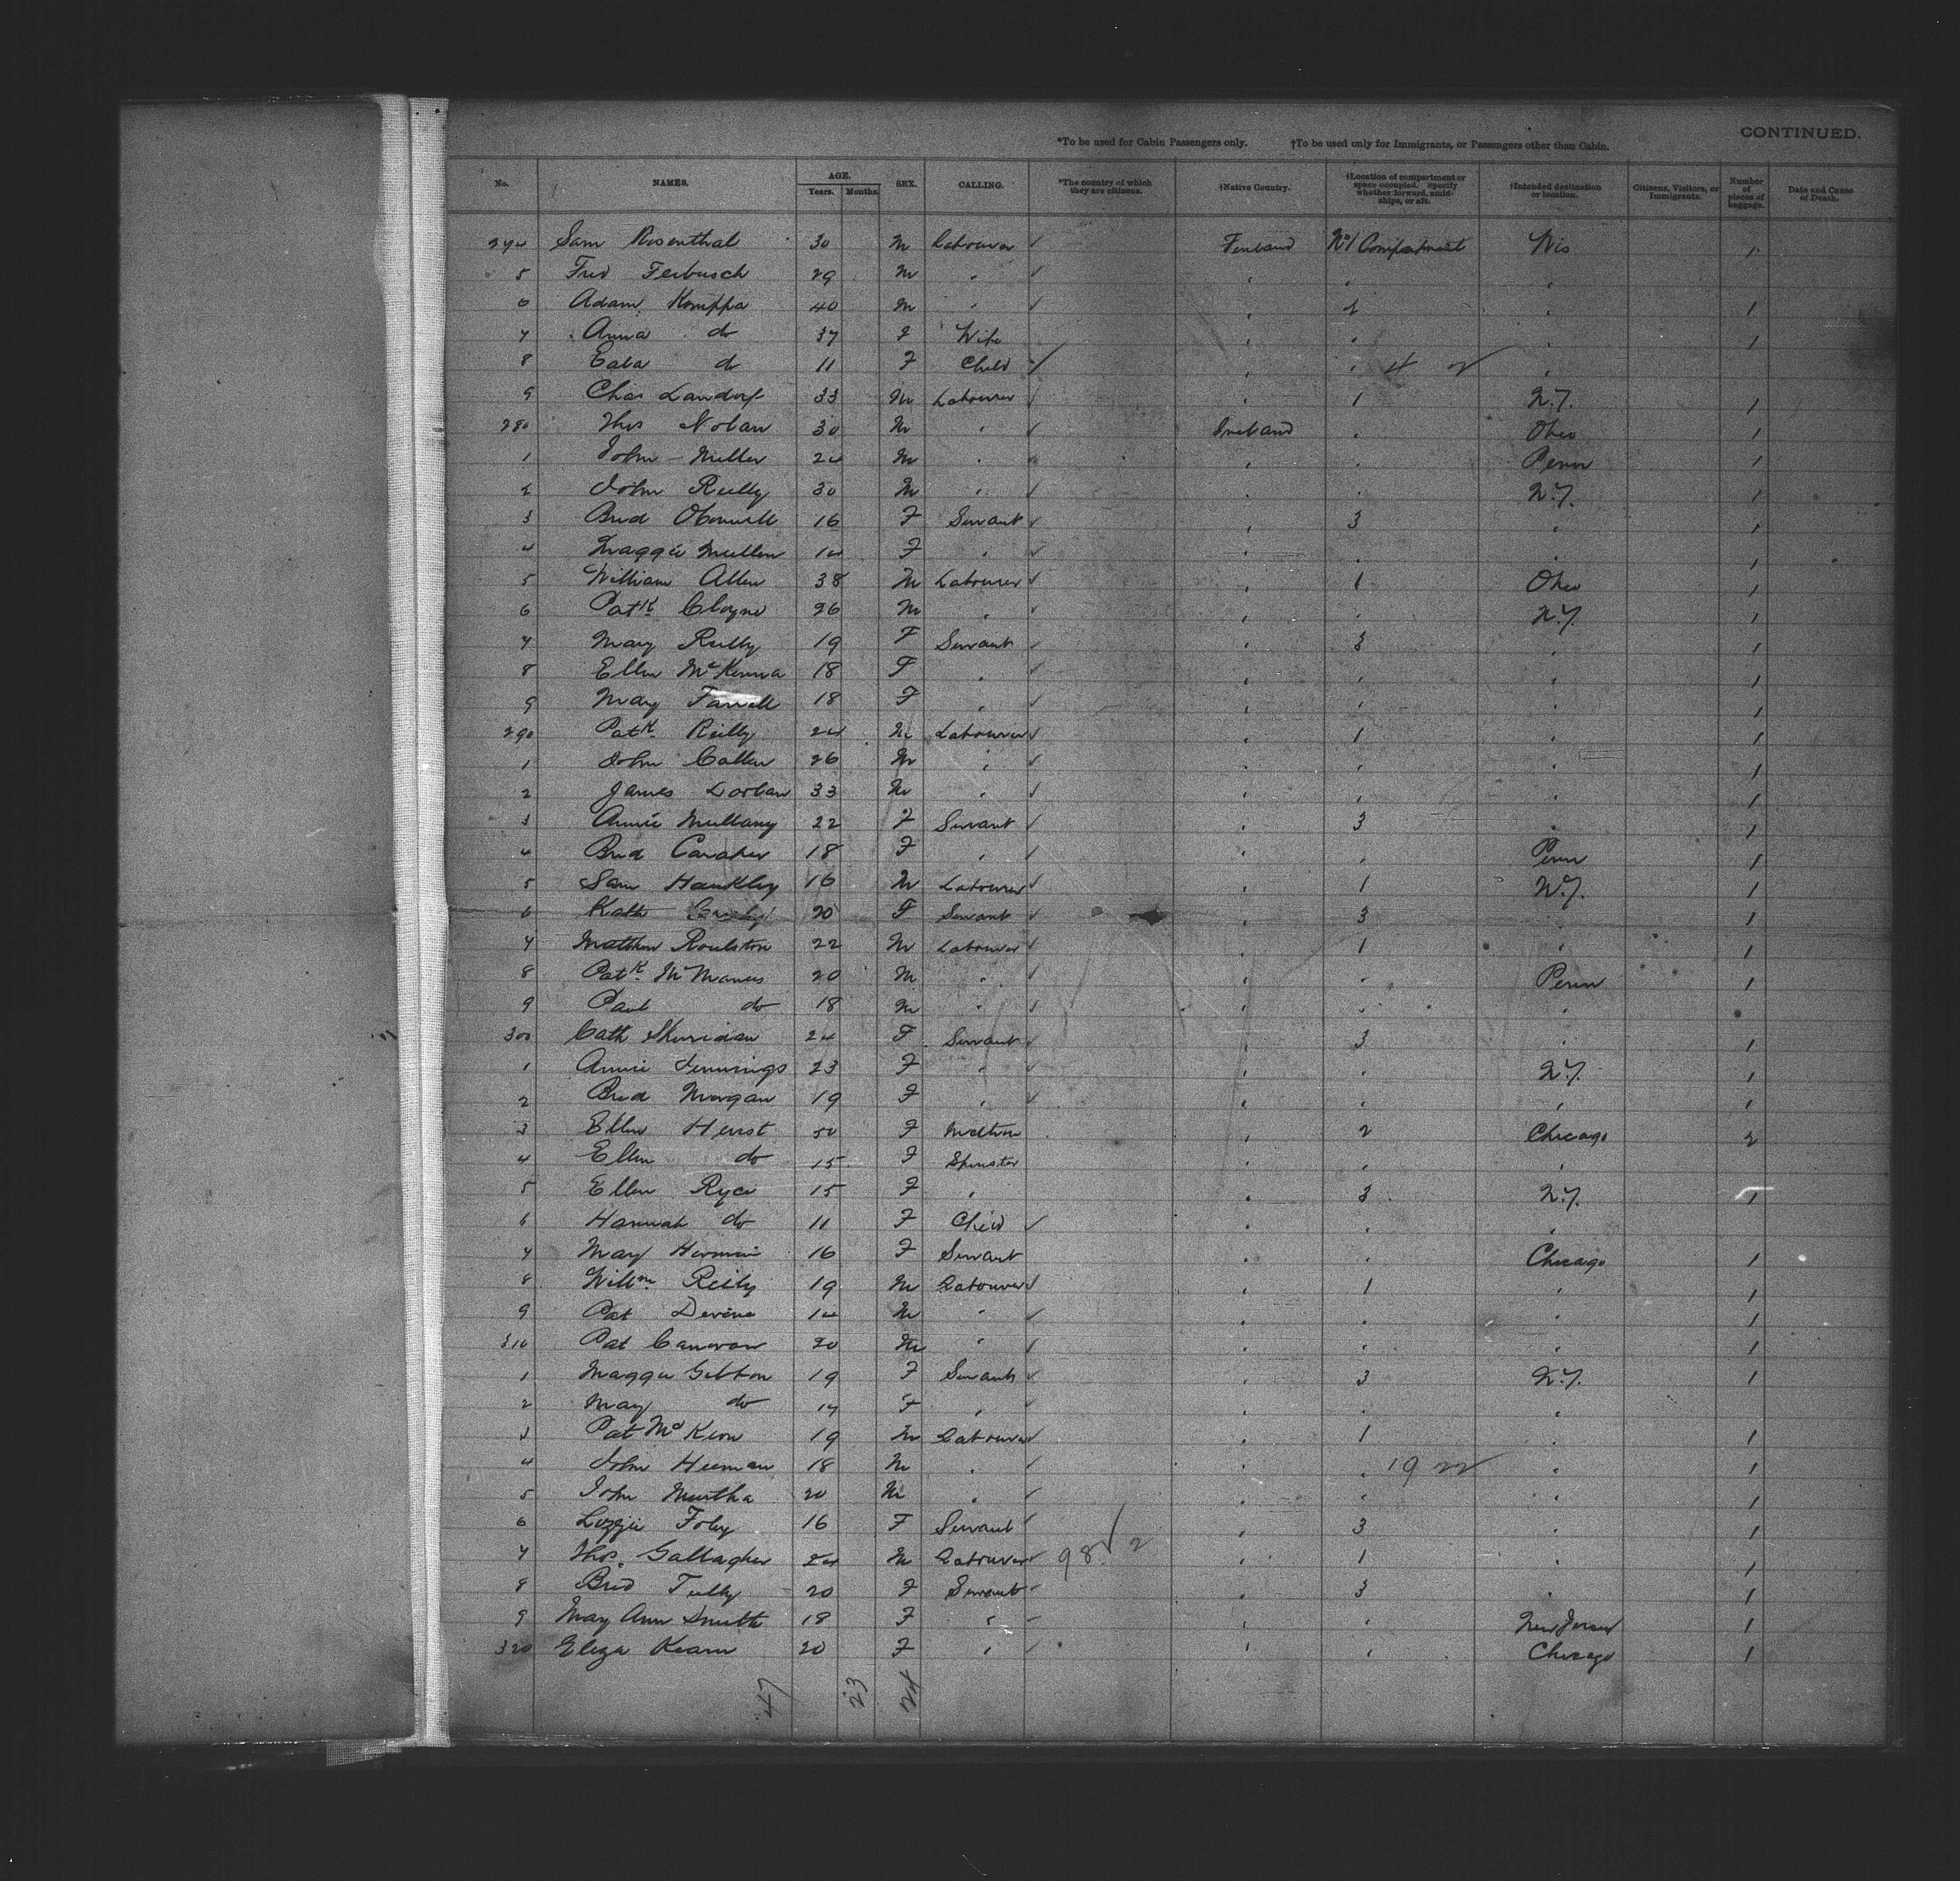 CONTINUED.
*To be used for Cabin Passengers only. †To be used only for Immigrants, or Passengers other than Cabin.
No. NAMES. AGE. Years. Months. SEX. CALLING. *The country of which they are citizens. †Native Country. †Location of compartment or space occupied. Specify whether forward, amidships, or aft. †Intended destination or location. Citizens, Visitors, or Immigrants. Number of pieces of baggage. Date and Cause of Death.
274 Sam Rosenthal 30 M Labourer ✓ Finland No 1 Compartment Wis 1
5 Fred 29 M " ✓ " " "
6 Adam Knippa 40 M " ✓ " 2 " 1
7 Anna do 37 F Wife " " " 1
8 do 11 F Child ✓ " " 4 2 ✓ "
9 Chas Landorf 33 M Labourer ✓ " 1 N.Y. 1
280 Thos Nolan 30 M " ✓ Ireland " Ohio 1
1 John Miller 24 M " " " Penn 1
2 John Reilly 30 M " ✓ " " N.Y. 1
3 Brid OConnell 16 F Servant ✓ " 3 " 1
4 Maggie Mullen 14 F " ✓ " " " 1
5 William Allen 38 M Labourer ✓ " 1 Ohio 1
6 Patk Cloyne 26 M " ✓ " " N.Y. 1
7 May Reilly 19 F Servant ✓ " 3 " 1
8 Ellen McKenna 18 F " ✓ " " " 1
9 May Farrell 18 F " ✓ " " " 1
290 Patk Reilly 24 M Labourer ✓ " 1 " 1
1 John Callen 26 M " ✓ " " " 1
2 James Dorlan 33 M " ✓ " " " 1
3 Annie Mullany 22 F Servant ✓ " 3 " 1
4 Brid Caraher 18 F " ✓ " " Penn 1
5 Sam Hankley 16 M Labourer ✓ " 1 N.Y. 1
6 Kath 20 F Servant ✓ " 3 " 1
7 Matthew Roulston 22 M Labourer ✓ " 1 " 1
8 Patk McManus 20 M " ✓ " " Penn 1
9 Paul do 18 M " ✓ " " "
300 Cath Sheridan 24 F Servant ✓ " 3 " 1
1 Annie Jennings 23 F " ✓ " " N.Y. 1
2 Brid Morgan 19 F " ✓ " " " 1
3 Ellen Hurst 50 F Matron " 2 Chicago 2
4 Ellen do 15 F Spinster " " "
5 Ellen Ryce 15 F " " 3 N.Y. 1
6 Hannah do 11 F Child ✓ " " "
7 May 16 F Servant " " Chicago 1
8 Willm Reily 19 M Labourer ✓ " 1 " 1
9 Pat Devine 14 M " ✓ " " " 1
310 Pat Canovan 20 M " ✓ " " " 1
1 Maggie Gibbon 19 F Servant ✓ " 3 N.Y. 1
2 May do 17 F " ✓ " " "
3 Pat McKeon 19 M Labourer ✓ " 1 " 1
4 John Heeman 18 M " ✓ " " 19 22 ✓ " 1
5 John Murtha 20 M " ✓ " " " 1
6 Lizzie Foley 16 F Servant ✓ " 3 " 1
7 Thos. Gallagher 24 M Labourer ✓ 98 ✓ 2 " 1 " 1
8 Brid Tully 20 F Servant ✓ " 3 " 1
9 May Ann Smith 18 F " " " New Jersey 1
320 Eliza Kearn 20 F " ✓ " " Chicago 1
47 23 24